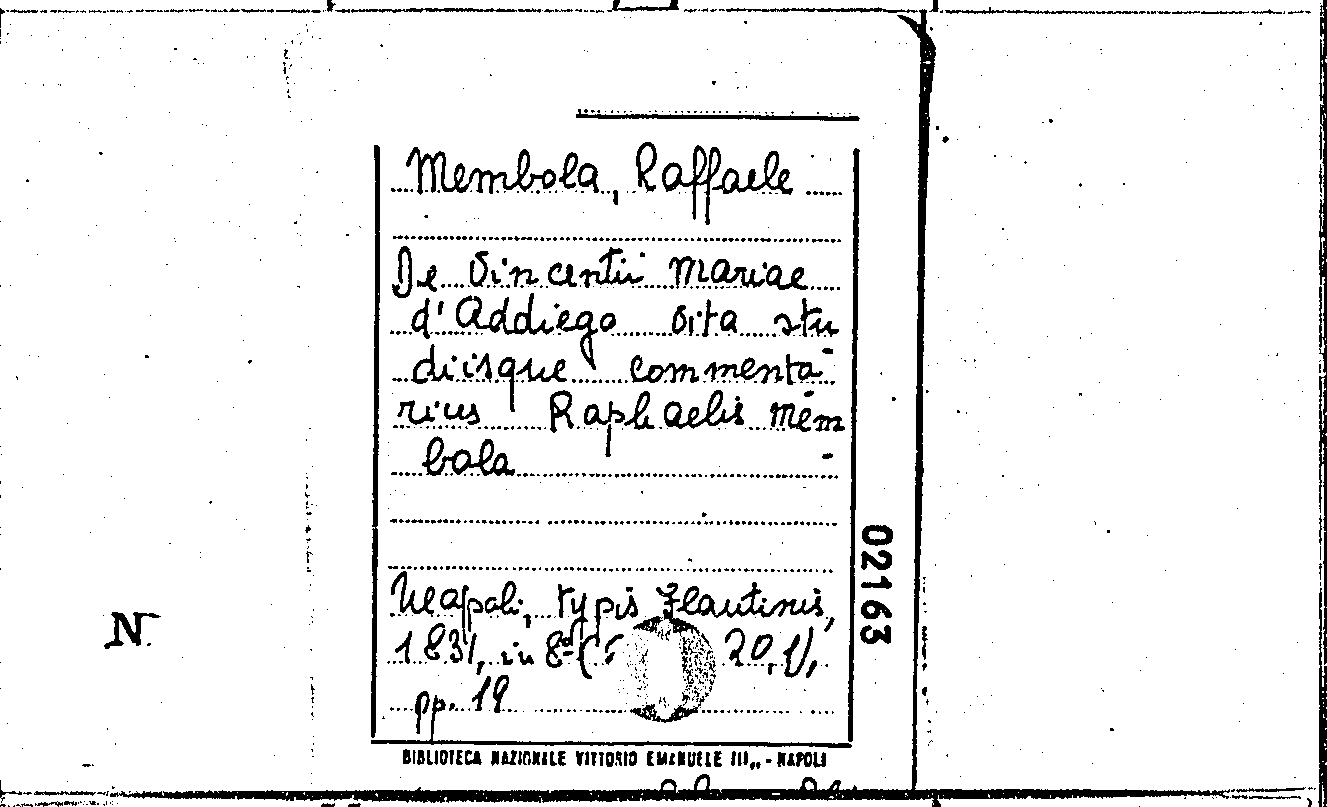 Membola, Raffaele
De Vincentii Mariae
d'Addiego vita stu-
diisque commenta-
rius Raphaelis Mem-
bola
Neapoli, typis Flautinis,
1831, in 8º (         20,1),
pp. 19
02163
N.
BIBLIOTECA NAZIONALE VITTORIO EMANUELE III,, - NAPOLI